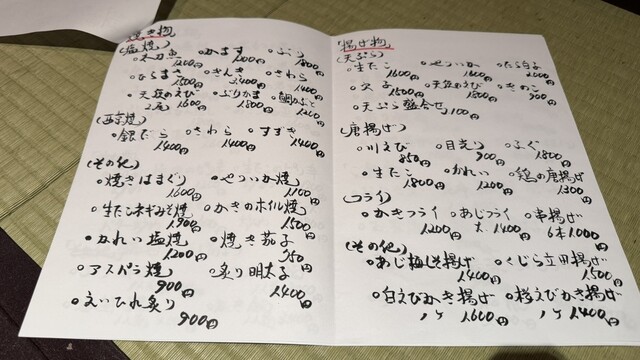 焼き物
(塩焼)
○太刀魚 1200円 ○かます 1200円 ○ぶり 1800円
○ひらまさ 1500円 ○きんき 3.400円 ○さわら 1400円
○天然めえび 2尾 1600円 ○ぶりかま 1800円 ○鯛かぶと 1200円
(西京焼)
○銀だら 1400円 ○さわら 1400円 ○すずき 1400円
(その他)
○焼きはまぐり 1600円 ○せついか焼 1100円
○生たこネギみそ焼 1900円 ○かきのホイル焼 1500円
○かれい塩焼 1200円 ○焼き茄子 750円
○アスパラ焼 900円 ○炙り明太子 1400円
○えいひれ炙り 900円
揚げ物
(天ぷら)
○生たこ 1600円 ○せついか 1400円 ○たら白子 2000円
○穴子 1500円 ○天然めえび 1800円 ○きのこ 900円
○天ぷら盛合せ 2100円
(唐揚げ)
○川えび 850円 ○目光り 900円 ○ふぐ 1800円
○生たこ 1800円 ○かれい 1200円 ○鶏の唐揚げ 1300円
(フライ)
○かきフライ 1200円 ○あじフライ 1400円 ○串揚げ 6本1.000円
(その他)
○あじ梅しそ揚げ 1400円 ○くじら立田揚げ 1500円
○白えびかき揚げ 1ケ 1600円 ○桜えびかき揚げ 1ケ 1400円